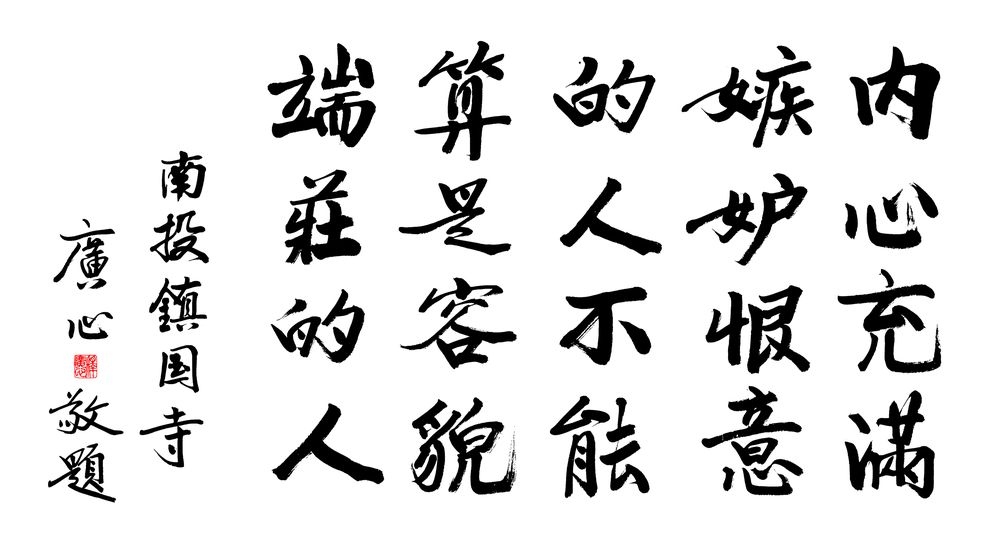 内心充滿
嫉妒恨意
的人不能
算是容貌
端莊的人
南投鎮国寺
廣心敬題